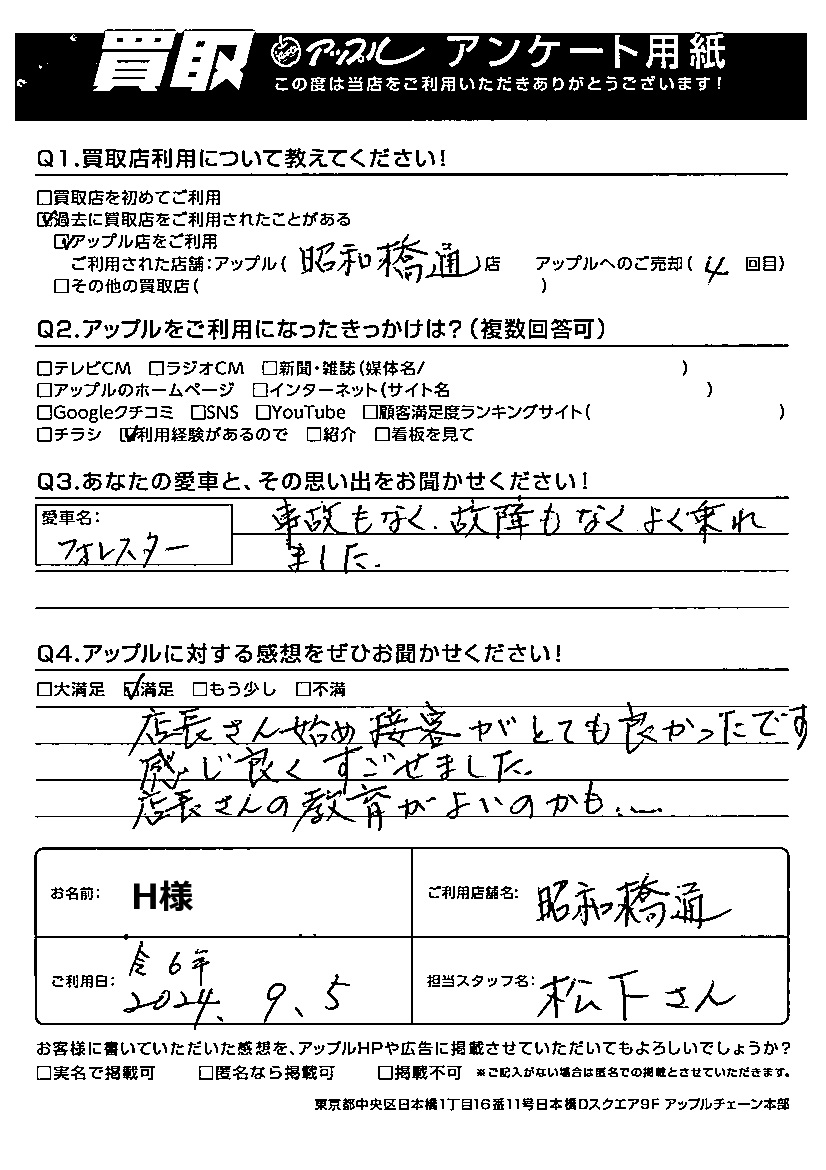 買取 アップル アンケート用紙
この度は当店をご利用いただきありがとうございます!
Q1.買取店利用について教えてください!
□買取店を初めてご利用
☑過去に買取店をご利用されたことがある
☑アップル店をご利用
ご利用された店舗:アップル(昭和橋通)店 アップルへのご売却(4 回目)
□その他の買取店( )
Q2.アップルをご利用になったきっかけは?(複数回答可)
□テレビCM □ラジオCM □新聞・雑誌(媒体名/ )
□アップルのホームページ □インターネット(サイト名 )
□Googleクチコミ □SNS □YouTube □顧客満足度ランキングサイト( )
□チラシ ☑利用経験があるので □紹介 □看板を見て
Q3.あなたの愛車と、その思い出をお聞かせください!
愛車名:
フォレスター
事故もなく.故障もなくよく乗れ
ました.
Q4.アップルに対する感想をぜひお聞かせください!
□大満足 ☑満足 □もう少し □不満
店長さん始め接客がとても良かったです
感じ良くすごせました.
店長さんの教育がよいのかも...
お名前: H様
ご利用店舗名: 昭和橋通
ご利用日: 令6年
2024. 9. 5
担当スタッフ名: 松下さん
お客様に書いていただいた感想を、アップルHPや広告に掲載させていただいてもよろしいでしょうか?
□実名で掲載可 □匿名なら掲載可 □掲載不可 ※ご記入がない場合は匿名での掲載とさせていただきます。
東京都中央区日本橋1丁目16番11号日本橋Dスクエア9F アップルチェーン本部